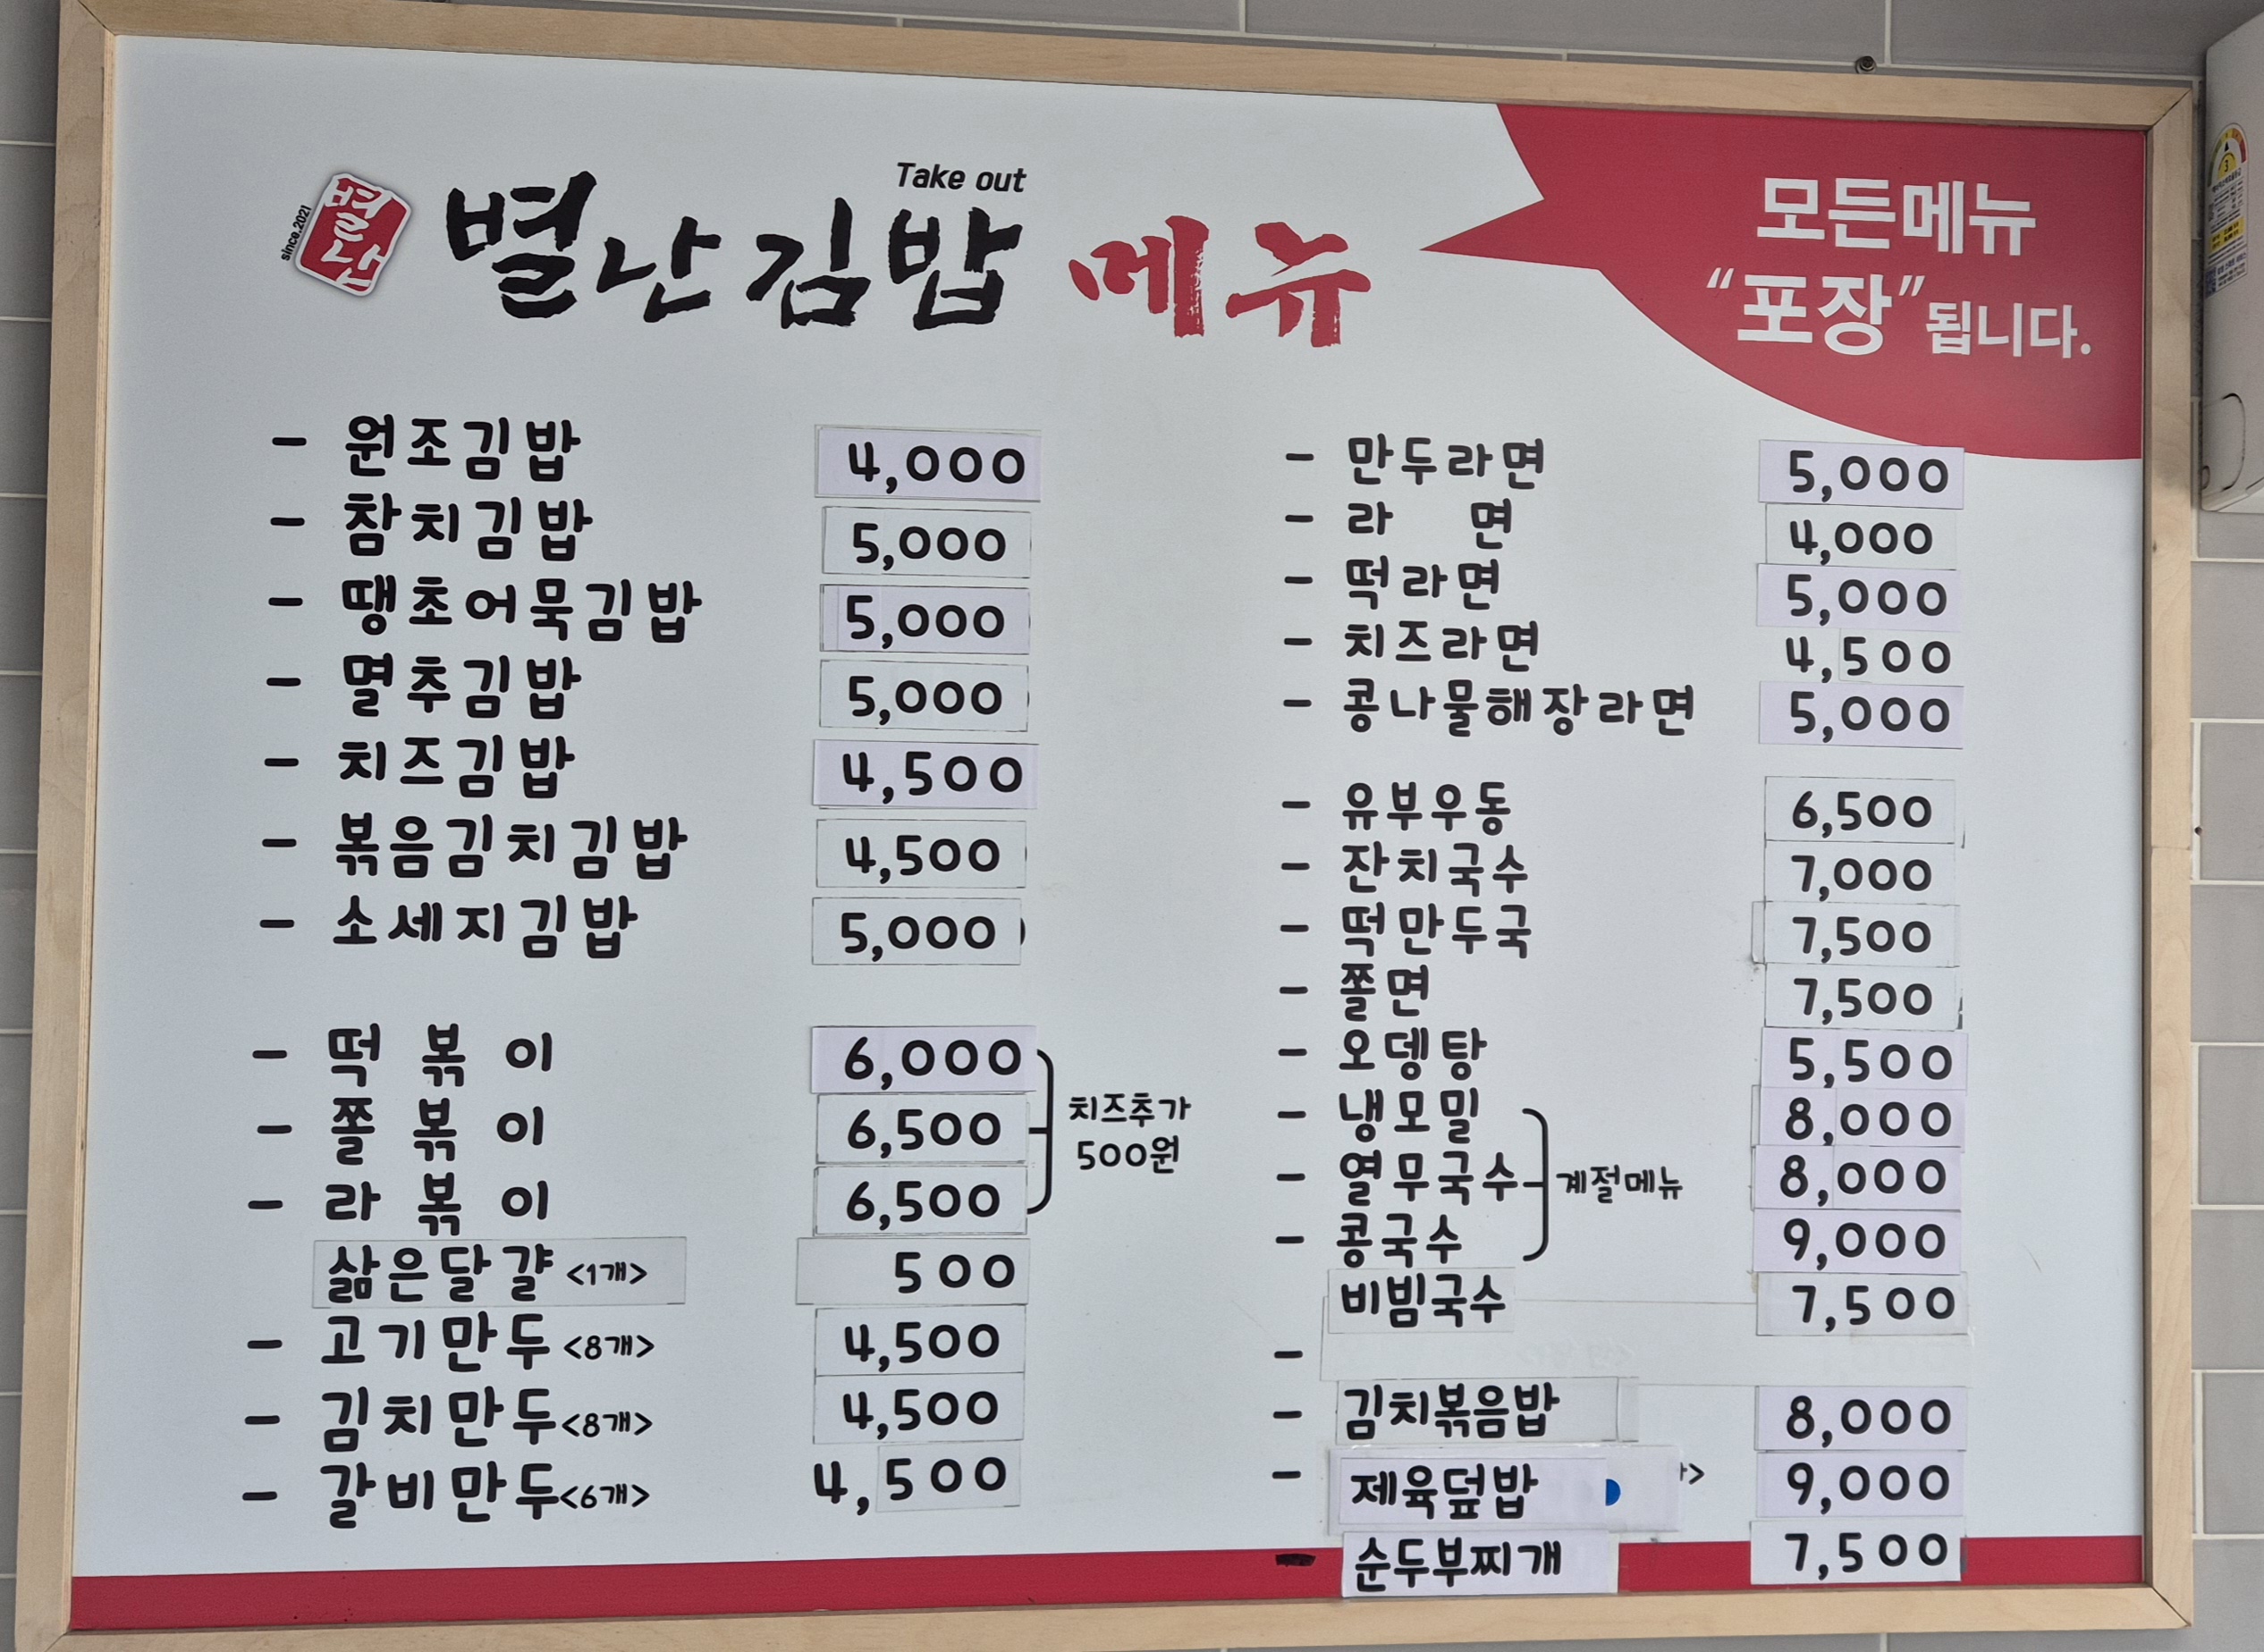 since.2021
별난
Take out
별난김밥 메뉴
모든메뉴
“포장”됩니다.
- 원조김밥 4,000
- 참치김밥 5,000
- 땡초어묵김밥 5,000
- 멸추김밥 5,000
- 치즈김밥 4,500
- 볶음김치김밥 4,500
- 소세지김밥 5,000
- 떡볶이 6,000
- 쫄볶이 6,500
- 라볶이 6,500
치즈추가
500원
삶은달걀<1개> 500
- 고기만두<8개> 4,500
- 김치만두<8개> 4,500
- 갈비만두<6개> 4,500
- 만두라면 5,000
- 라 면 4,000
- 떡라면 5,000
- 치즈라면 4,500
- 콩나물해장라면 5,000
- 유부우동 6,500
- 잔치국수 7,000
- 떡만두국 7,500
- 쫄면 7,500
- 오뎅탕 5,500
- 냉모밀 8,000
- 열무국수 8,000
- 콩국수 9,000
계절메뉴
비빔국수 7,500
-
- 김치볶음밥 8,000
- 제육덮밥 9,000
- 순두부찌개 7,500